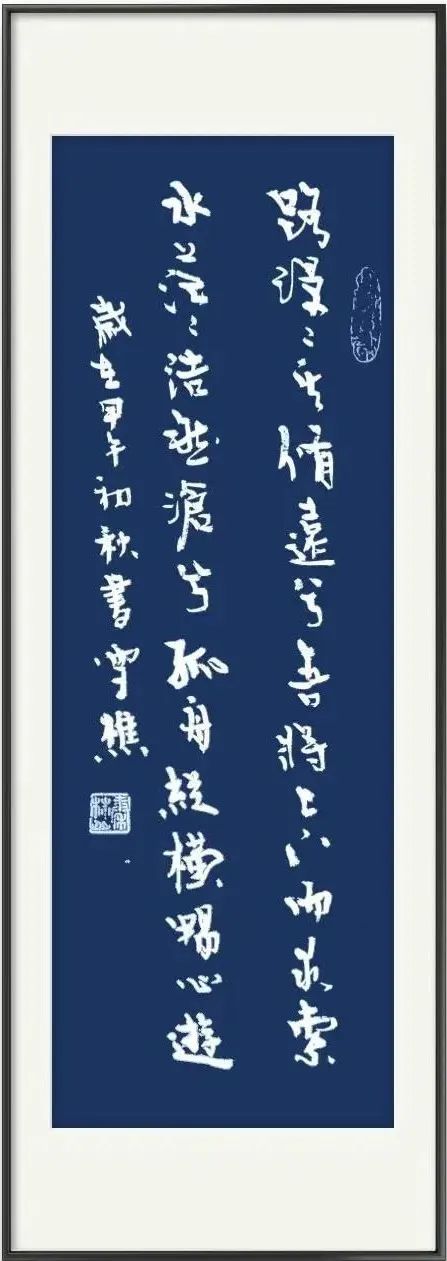 路漫〻其脩遠兮吾將上下而求索
水茫〻浩然滄兮孤舟縱橫暢心遊
歲在甲午初秋書雪樵